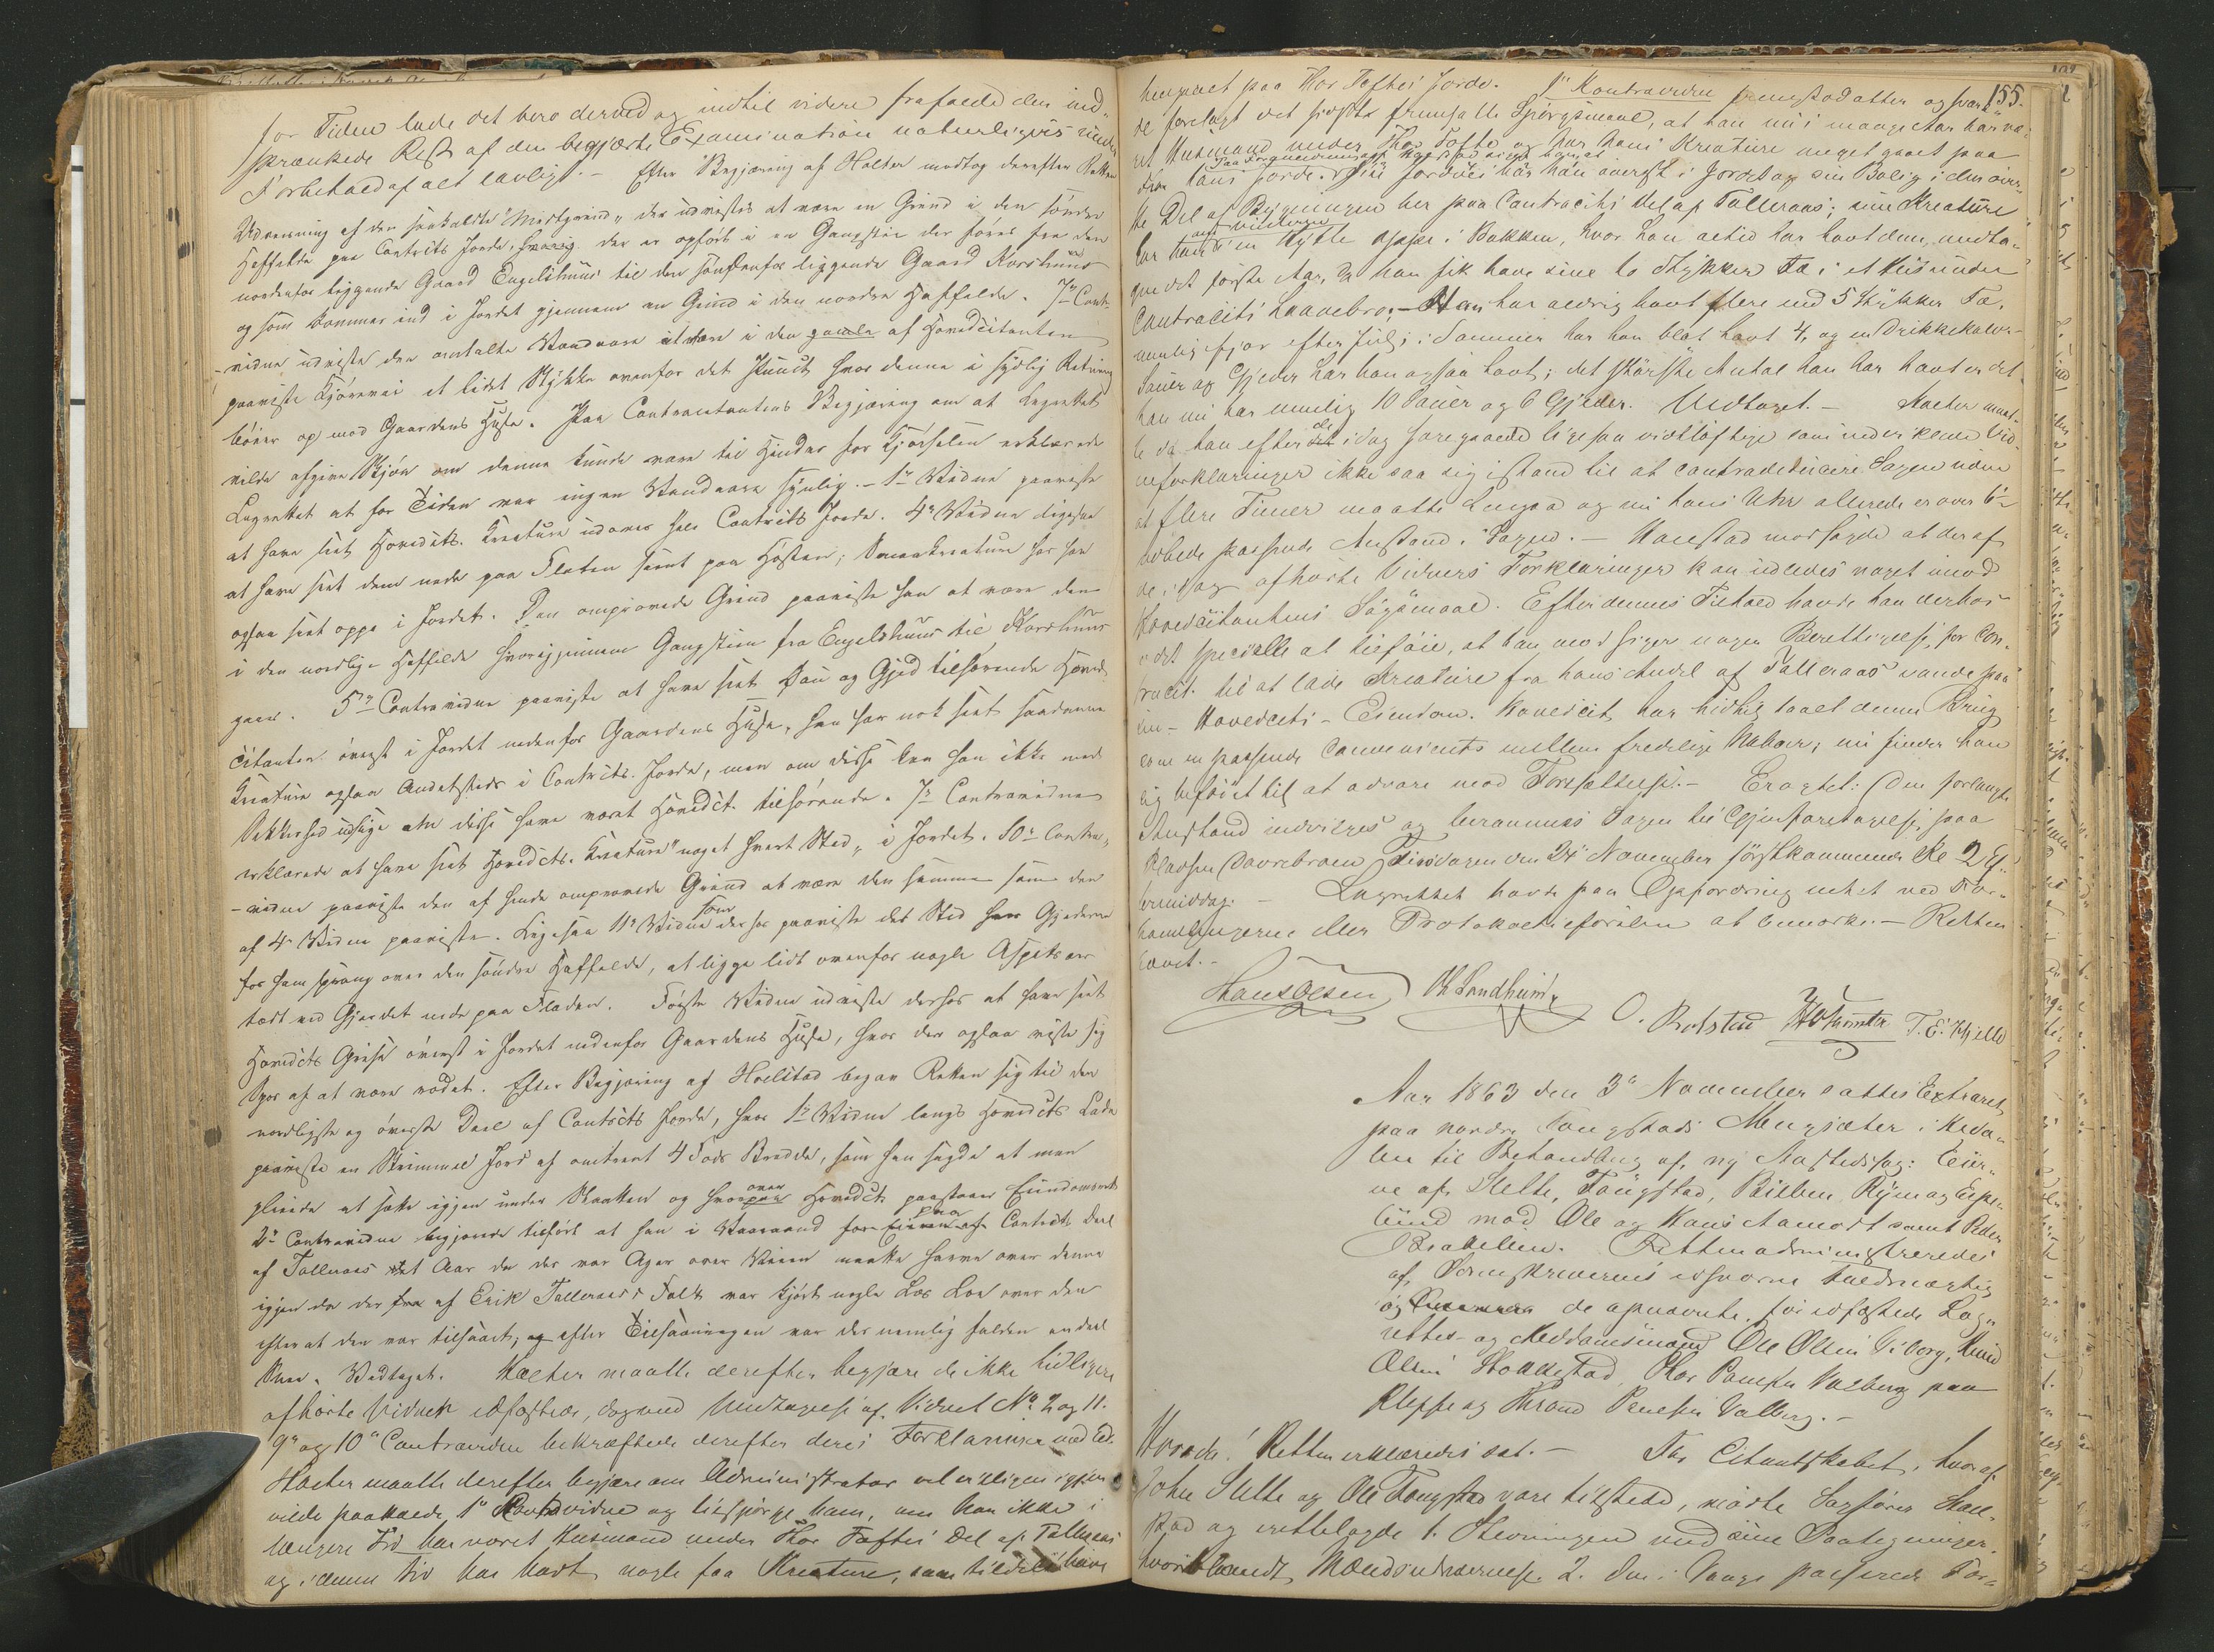 for Tiden lade det bero derved og indtil videre frafaldt den ind-
skrænkede Rest af den begjærte Examination naturligvis under
Forbehold af alt lovligt. – Efter Begjæring af Holter modtog derefter Retten
Udvisning af den saakaldte "Mostgrind", der udvistes at være en Grind i den søndre
Hessilde paa Contrcits Jorde, hvorig der er opført i en Gangstie der føres fra den
nordenfor liggende Gaard Engelshuus til den søndenfor liggende Gaard Korshuus
og som kommer ind i Jordet gjennem en Grind i den nordre Hessilde. 7de Contra-
vidne udviste den omtalte Vandaare at være i den gamle af Hovedcitanten
paaviste Kjørevei et lidet Stykke ovenfor det Punct hvor denne i sydlig Retning
bøier op mod Gaardens Huse. Paa Contracitantens Begjæring om at Lagrettet
vilde afgive Skjøn om denne kunde være til Hinder for Kjørselen erklærede
Lagrettet at for Tiden var ingen Vandaare synlig. – 1ste Vidne paaviste
at have seet Hovedcits. Kreature udover hele Contrcits Jorde. 4de Vidne ligesaa
at have seet dem nede paa Flaten seent paa Høsten; Smaakreature har han
ogsaa seet oppe i Jordet. Den omprovede Grind paaviste han at være den
i den nordlige Hessilde hvorigjennem Gangstien fra Engelshuus til Korshuus
gaar. 5te Contravidne paaviste at have seet Sau og Gjed tilhørende Hoved-
citanten øverst i Jordet nedenfor Gaardens Huse, han har nok seet saadanne
Kreature ogsaa Andetsteds i Contrcits Jorde, men om disse kan han ikke med
Sikkerhed udsige at disse have været Hovedct. tilhørende. 7de Contravidne
erklærede at have seet Hovedcts. Kreature "noget hvert Sted" i Jordet. 10de Contra-
-vidne paaviste den af hende omprovede Grind at være den samme som den
af 4de Vidne paaviste. Ligesaa 11te Vidne der for paaviste det Sted hvor Gjederne
for ham sprang over den søndre Hessilde, at ligge lidt ovenfor nogle Asper
tæt ved Gjerdet nede paa Fladen. Første Vidne udviste derhos at have seet
Hovedcts Grise øverst i Jordet nedenfor Gaardens Huse, hvor der ogsaa viste sig
Spor af at være rodet. Efter Begjæring af Hoelstad begav Retten sig til den
nordligste og øverste Deel af Contrcits Jorde, hvor 1ste Vidne langs Hovedcts Lade
paaviste en Strimmel Jord af omtrent 4 Fods Bredde, som han sagde at man
pleiede at sætte igjen under Slaatten og hvorover Hovedct. paastaar Eiendomsret
2det Contravidne begjærede tilført at han i
af Tolleraas et Aar da der var Ager over Veien maatte harve over denne
igjen da der af Erik Tolleraas's Folk var kjørt nogle Læs Løv over den
efter at den var tilsaaet; og efter Tilsaaningen var der nemlig falden endeel
Snee. Vedtaget. Holter maatte derefter begjære de ikke tidligere
afhørte Vidner edfæstede, dog med Undtagelse af Vidnet No 2 og 11.
9de og 10de Contravidne bekræftede derefter deres Forklaringer med Ed.
Holter maatte derefter begjære om Administrator velvilligen igjen
vilde paakalde 1ste Contravidne og tilspørge ham, om han ikke i
længere Tid har været Huusmand under Thor Toftes Del af Tolleraas
og i denne Tid har havt nogle faa Kreature, som tildels have
155.
hengaaet paa Thor Toftes Jorde. 1ste Kontravidne fremstod atter og svare-
de forelagt det sidste fremsatte Spørgsmaal, at han nu i mange Aar har væ-
ret Huusmand under Thor Tofte og har hans Kreature meget gaaet paa
hans Jorde. Sin Jordvei har han øverst i Jordet og sin Bolig i den øver-
ste Del af Bygningen her paa Contracits Del af Tolleraas; sine Kreature
har han i en Hytte oppe i Bakken, hvor han altid har havt dem, undta-
gen det første Aar, da han fik have sine to Stykker Fæ i et Huus under
Contracits Laavebro. – Han har aldrig havt flere end 5 Stykker Fæ,
nemlig ifjor efter Juli; i Sommer har han blot havt 4, og en Drikkekalv –
Sauer og Gjeder har han ogsaa havt; det største Antal han har havt er det
han nu har nemlig 10 Sauer og 6 Gjeder. Vedtaget. – Holter maat-
te da han efter de idag foregaaede ligesaa vidtløftige som Vid-
neforklaringer ikke saa sig istand til at contradeducere Sagen uden
at flere Timer maatte hengaa og nu hans Uhr allerede er over 6
udbede passende Anstand i Sagen. – Hoelstad modsagde at der af
de idag afhørte Vidners Forklaringer kan udledes noget imod
Hovedcitantens Søgsmaal. Efter dennes Tilhold havde han derhos
i det specielle at tilføie, at han modsiger nogen Berettigelse for Con-
tracit. til at lade Kreature fra hans Andel af Tolleraas vande paa
sin – Hovedcits – Eiendom. Hovedcit. har hidtil taalt denne Brug
som en passende Convenients mellem fredelige Naboer; nu finder han
sig beføiet til at advare mod Fortsættelse. – Eragtet: Den forlangte
Anstand indvilges og berammes Sagen til Gjenforetagelse paa
Pladsen Dovrebroen Tirsdagen den 24de November førstkommende Kl 2 Ef-
termiddag. – Lagrettet havde paa Opfordring intet ved For-
handlingerne eller Protokoltilførslen at bemærke. – Retten
hævet. –
Hans Olsen Ol. Sandheim O. Rolstad T. E. Kjelle
Aar 1863 den 3de November sattes Extraret
paa nordre Tangstads Mengsæter i Heda-
len til Behandling af ny Aastedssag: Eier-
ne af Slette, Tangstad, Bilben, Rusm og Espe-
lund mod Ole og Hans Aamodt samt Peder
Brabellen. Retten administreredes
af Sorenskriverens edsvorne Fuldmægtig
og de opnævnte, før edfæstede Lag-
rettes- og Meddomsmænd Ole Olsen Viborg, Knud
Olsen Haakestad, Thor Paulsen Valberg paa
Kleppe og Thrond Paulsen Valberg. –
Hvorda! Retten erklæredes sat. – For Citantskabet, hvoraf
John Slette og Ole Tangstad vare tilstede, mødte Sagfører Hoel-
stad og irettelagde 1. Stevningen med sine Paategninger,
hvoriblandt Mændsudnævnelse. 2. Den i Vaage passerede For-